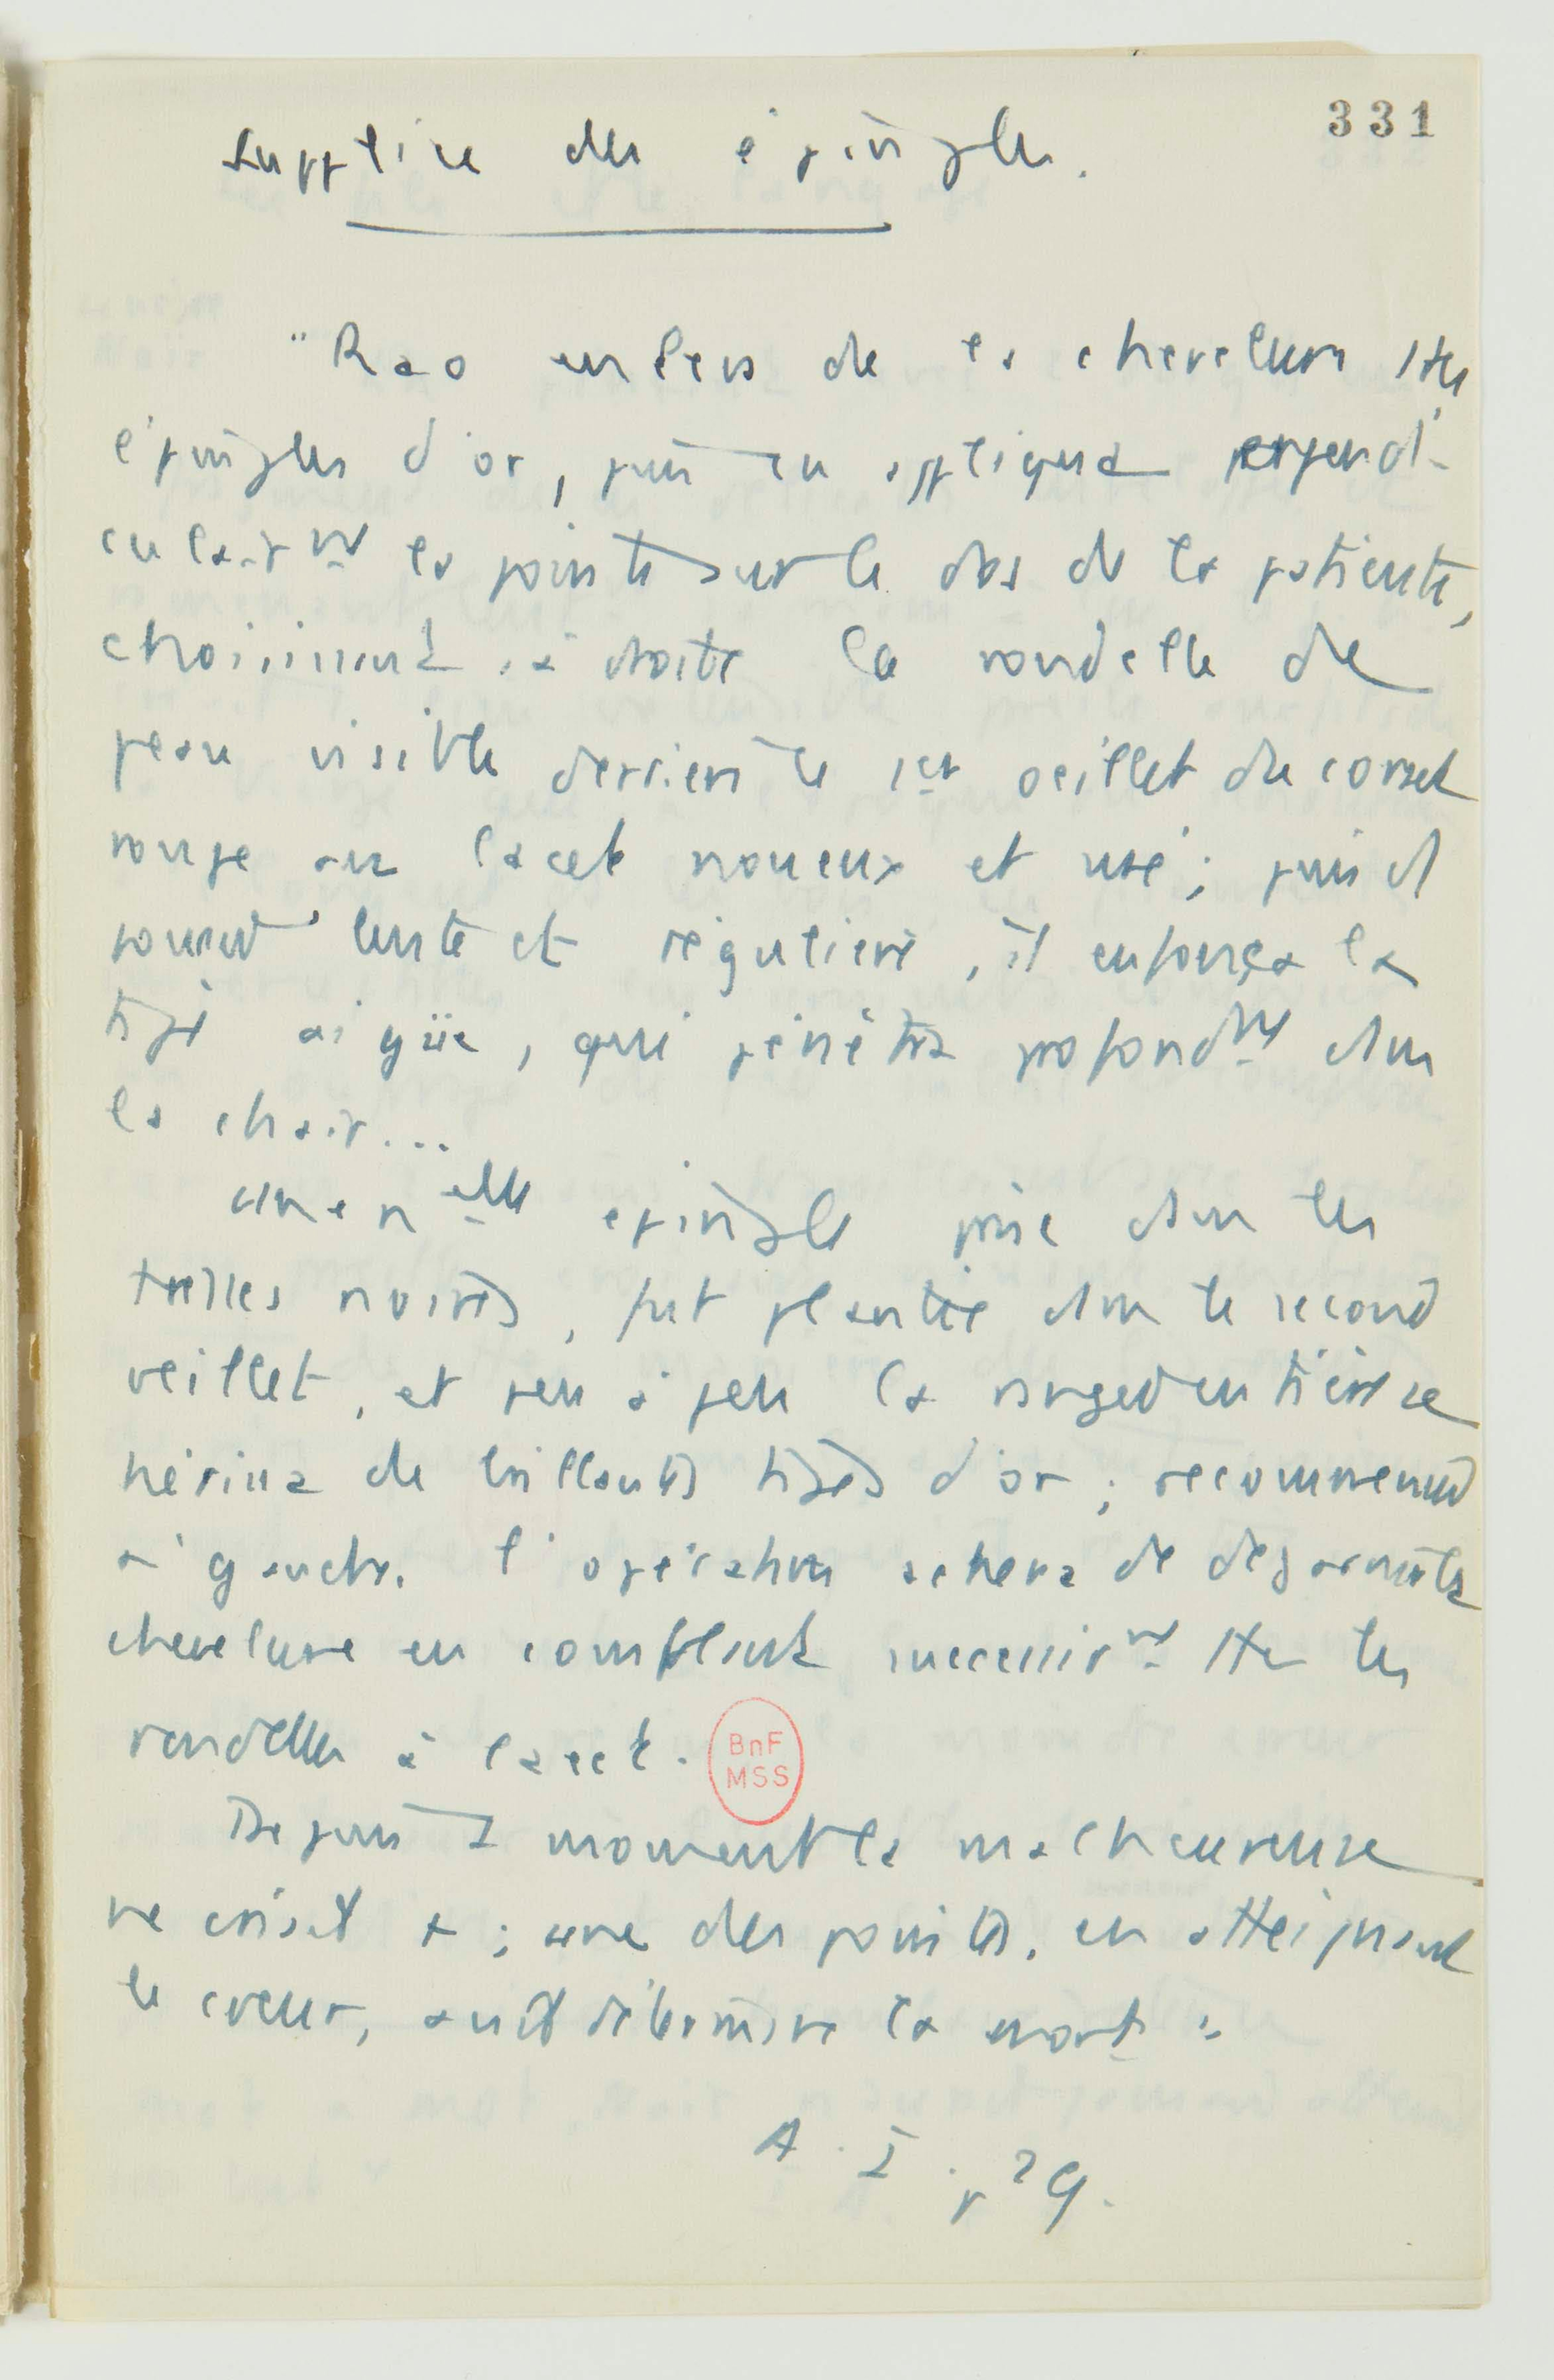 331
Supplice des épingles.
"Rao enleva de la chevelure ttes
épingles d'or, puis en appliqua perpendi-
culairnt la pointe sur le dos de la patiente,
choisissant à droite la rondelle de
peau visible derrière le 1er oeillet du corset
rouge au lacet noueux et usé ; puis d'1
poussée lente et régulière, il enfonça la
tige aigüe, qui pénétra profondnt dans
la chair...
une nelle épingle prise dans les
tresses noires, fut plantée dans le second
oeillet, et peu à peu la rangée entière se
hérissa de brillantes tiges d'or ; recommencée
à gauche, l'opération acheva de dégarnir la
chevelure en comblant successivnt ttes les
rondelles à lacet.
BnF
MSS
Depuis 1 moment la malheureuse
ne criait + ; une des pointes, en atteignant
le coeur, avait déterminé la mort "
A. I. p 29.